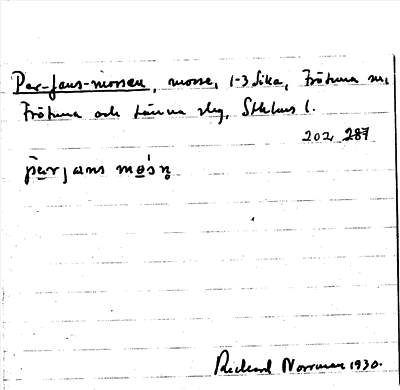 Per-Jans-mossen, mosse, 1-3 Sika, Frötuna sn,
Frötuna och Länna slg, Sthlms l.
202, 287
pärjans mos̀n̥
Richard Norrman 1930.